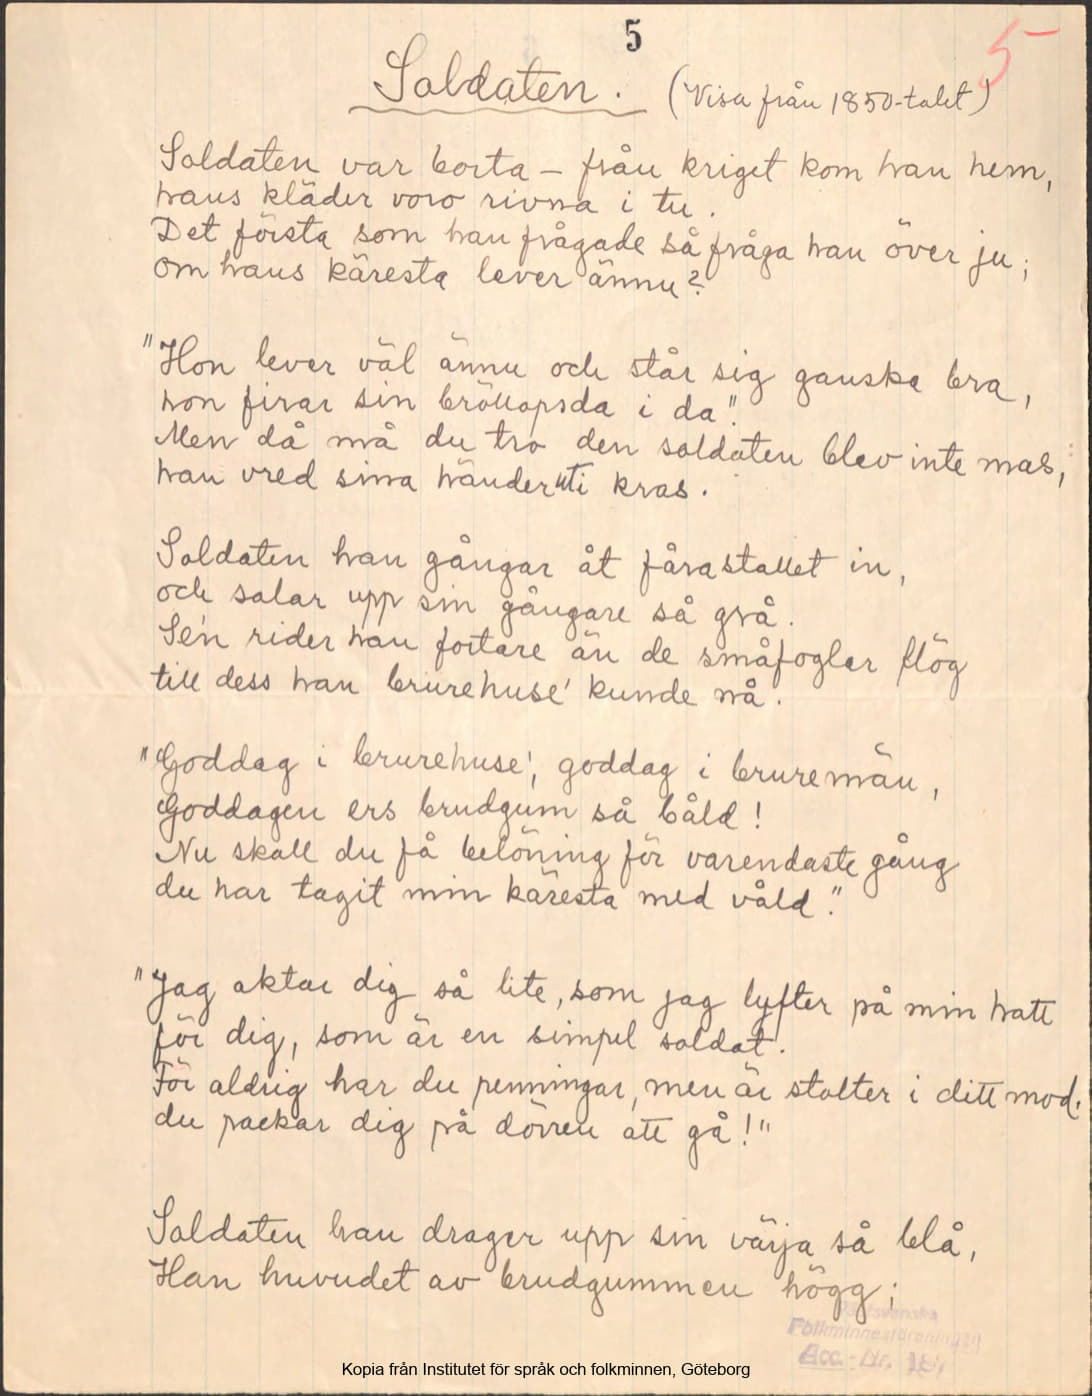 5
5
Soldaten. (Visa från 1850-talet)
Soldaten var borta – från kriget kom han hem,
hans kläder voro rivna i tu.
Det första som han frågade så fråga han över ju;
om hans käresta lever ännu?
"Hon lever väl ännu och står sig ganska bra,
hon firar sin bröllopsda i da".
Men då må du tro den soldaten blev inte mas,
han vred sina händer uti kras.
Soldaten han gångar åt fårastallet in,
och salar upp sin gångare så grå.
Se'n rider han fortare än de småfoglar flög
till dess han brurehuse' kunde nå.
"Goddag i brurehuse', goddag i bruremän,
Goddagen ers brudgum så båld!
Nu skall du få belöning för varendaste gång
du har tagit min käresta med våld."
"Jag aktar dig så lite, som jag lyfter på min hatt
för dig, som är en simpel soldat.
För aldrig har du penningar, men är stolter i ditt mod.
du packar dig på dörren att gå!"
Soldaten han drager upp sin värja så blå,
Han huvudet av brudgummen högg;
Västsvenska
Folkminnesföreningen
Acc.-Nr.
Kopia från Institutet för språk och folkminnen, Göteborg